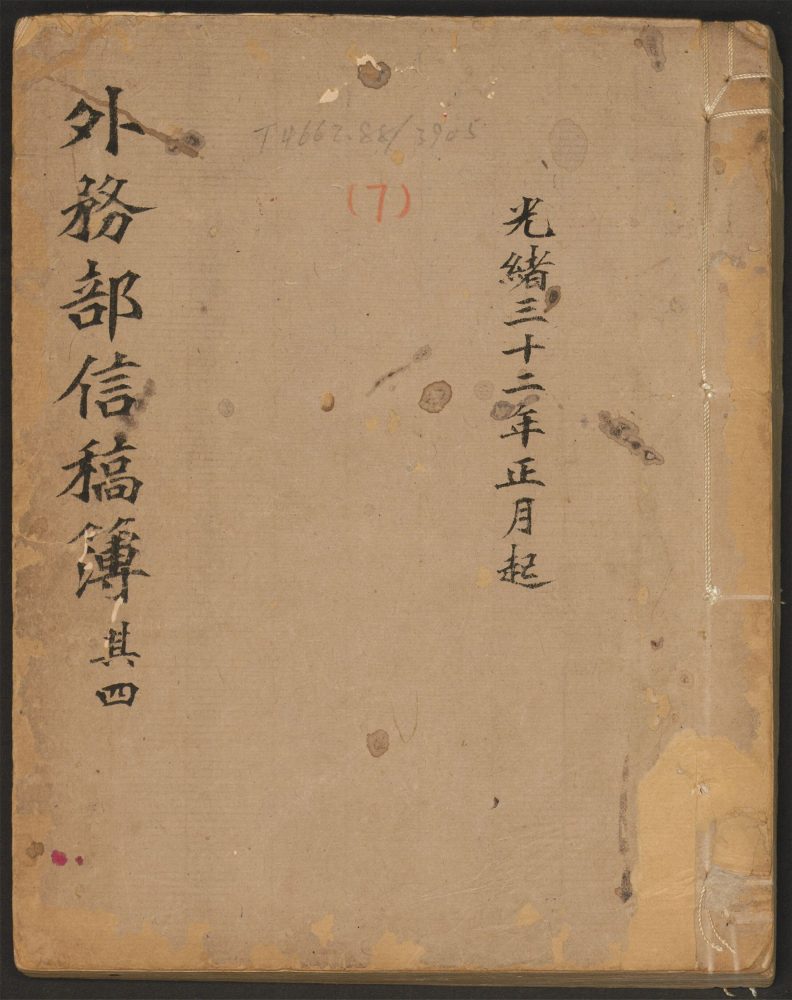 光緒三十二年正月起
T4662.88/3905
(7)
外務部信稿簿 其四